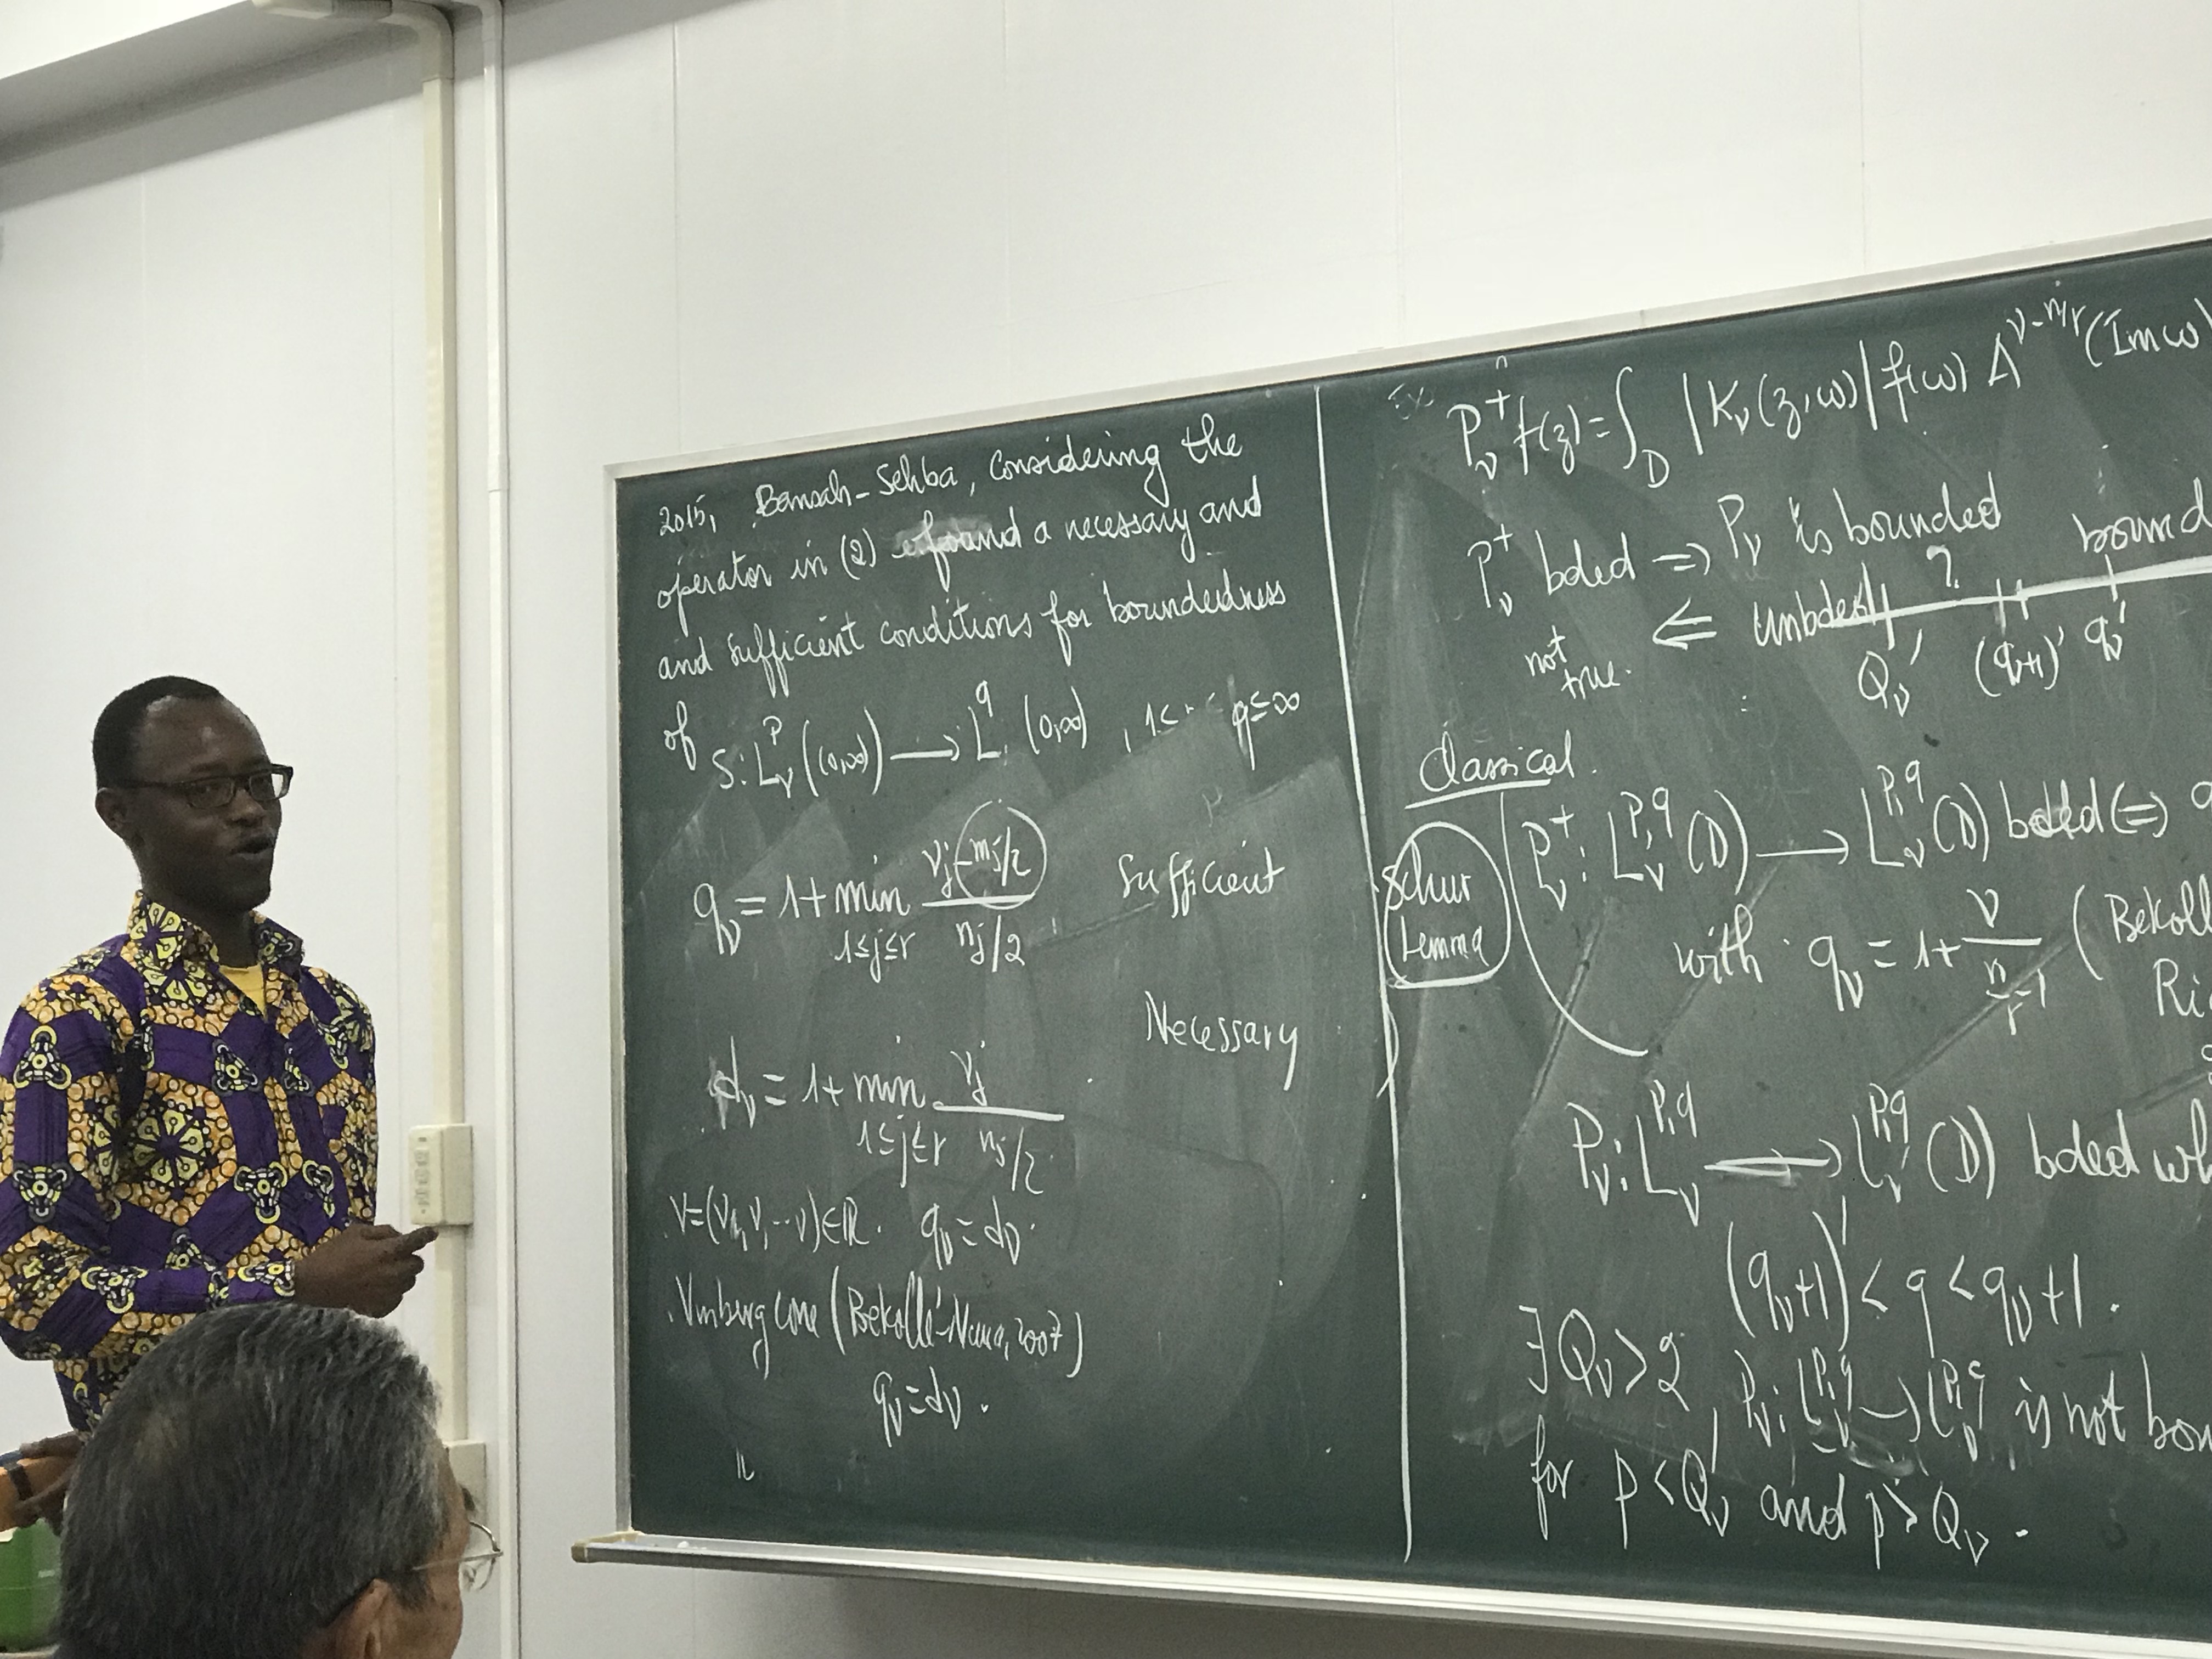 2015, Bansah-Sehba, considering the
operator in (2) found a necessary and
and sufficient conditions for boundedness
of S: L^p_ν((0,∞)) → L^q (0,∞) , 1≤ q≤∞
q_ν = 1+ min_{1≤j≤r} (ν_j - m_j/2)/(n_j/2) Sufficient
Necessary
d_ν = 1+ min_{1≤j≤r} ν_j/(n_j/2)
ν=(ν, ν, ... ν)∈ℝ. q_ν = d_ν.
. Vinberg cone (Bekollé-Nana, 2007)
q_ν = d_ν.
P_ν^+ f(z) = ∫_D |K_ν(z,ω)| f(ω) Δ^{ν-n/r}(Imω)
P_ν^+ bded ⇒ P_ν is bounded
not true. ⇐ Unbded ? bound
Q_ν' (q_ν+1)' q_ν'
Classical.
Schur Lemma
P_ν^+: L_ν^{p,q}(D) → L_ν^{p,q}(D) bded ⇔ q
with q_ν = 1+ ν/(n/r -1) (Bekoll
Ri
P_ν: L_ν^{p,q} → L_ν^{p,q}(D) bded wh
(q_ν+1)' < q < q_ν+1.
∃ Q_ν > 2, P_ν: L_ν^{p,q} → L_ν^{p,q} is not bou
for p < Q_ν' and p > Q_ν.